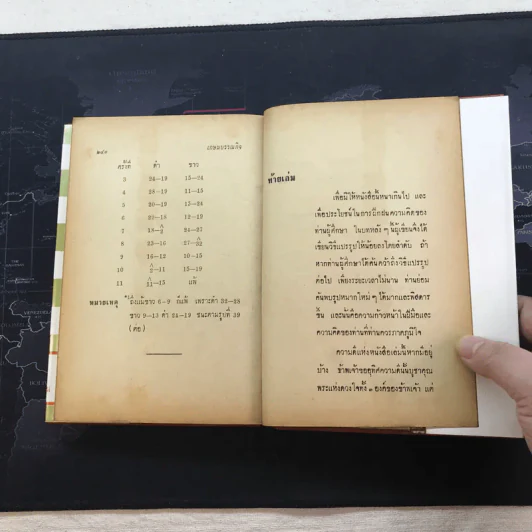 ๒๔๑
เกษมบรรณกิจ
คราที่ ดำ ขาว
3 24—19 15—24
4 28—19 11—15
5 20—19 15—24
6 20—16 12—19
7 18—2 24—27
8 23—16 27—32
9 16—12 10—15
10 2—11 15—19
11 11—15 แพ้
หมายเหตุ ถึงแม้ขาว 6—9 ก็แพ้ เพราะดำ 32—28
ขาว 9—13 ดำ 24—19 ชนะตามรูปที่ 39
(ต่อ)
ท้ายเล่ม
เพื่อมิให้หนังสือนี้หนาเกินไป และ
เพื่อประโยชน์ในการฝึกฝนความคิดของ
ท่านผู้ศึกษา ในบทหลัง ๆ นี้ผู้เขียนจึงได้
เขียนวิธีแปรรูปให้น้อยลงโดยลำดับ ถ้า
หากท่านผู้ศึกษาได้ค้นคว้าถึงวิธีแปรรูป
ต่อไป เพียงระยะเวลาไม่นาน ท่านย่อม
ค้นพบรูปหมากใหม่ ๆ ได้มากและพิสดาร
ขึ้น และนั่นคือความก้าวหน้าในฝีมือและ
ความคิดของท่านที่ท่านควรภาคภูมิใจ
ความดีแห่งหนังสือเล่มนี้หากมีอยู่
บ้าง ข้าพเจ้าขออุทิศความดีนั้นบูชาคุณ
พระแห่งดวงใจทั้ง ๓ องค์ของข้าพเจ้า แด่